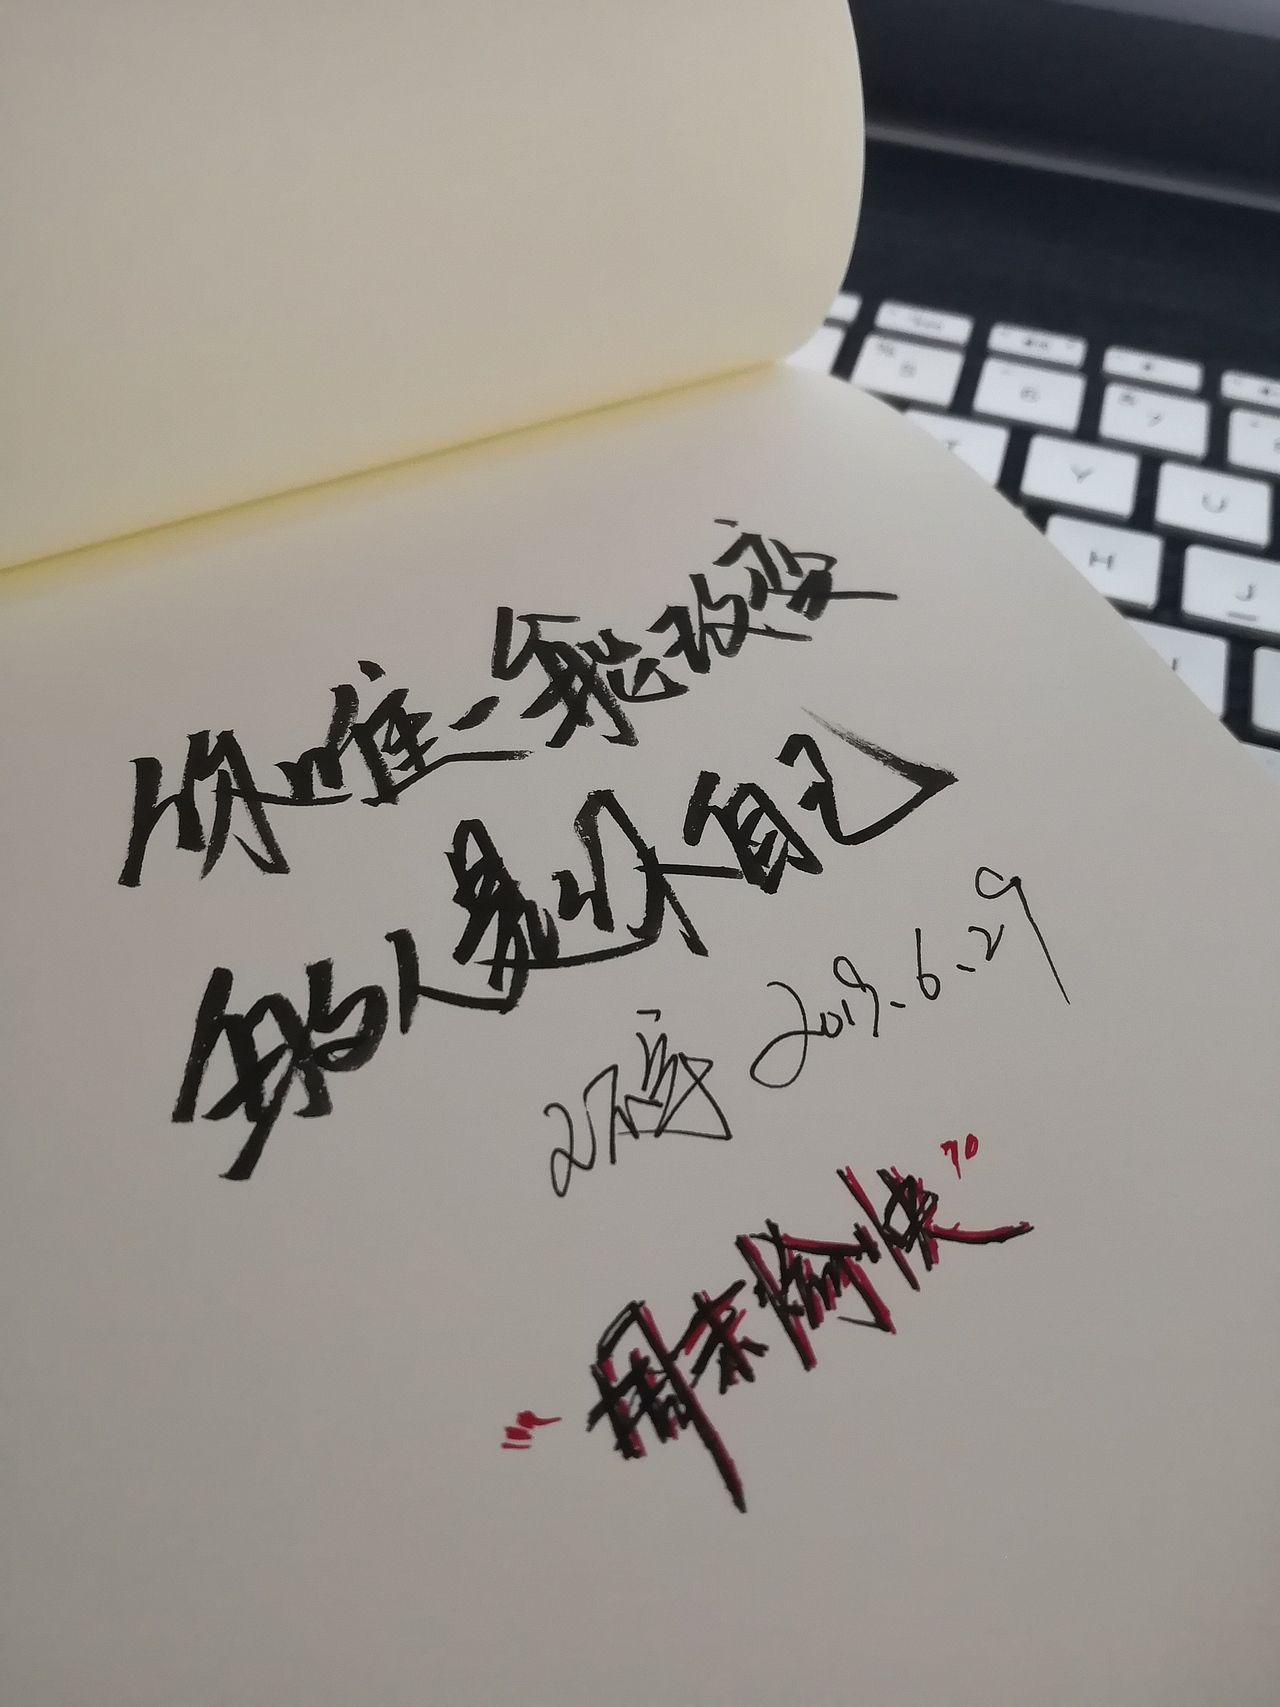 5 6 7
Y U
H J
你唯一能改变
的人是你自己
2019.6.29
"周末愉快"